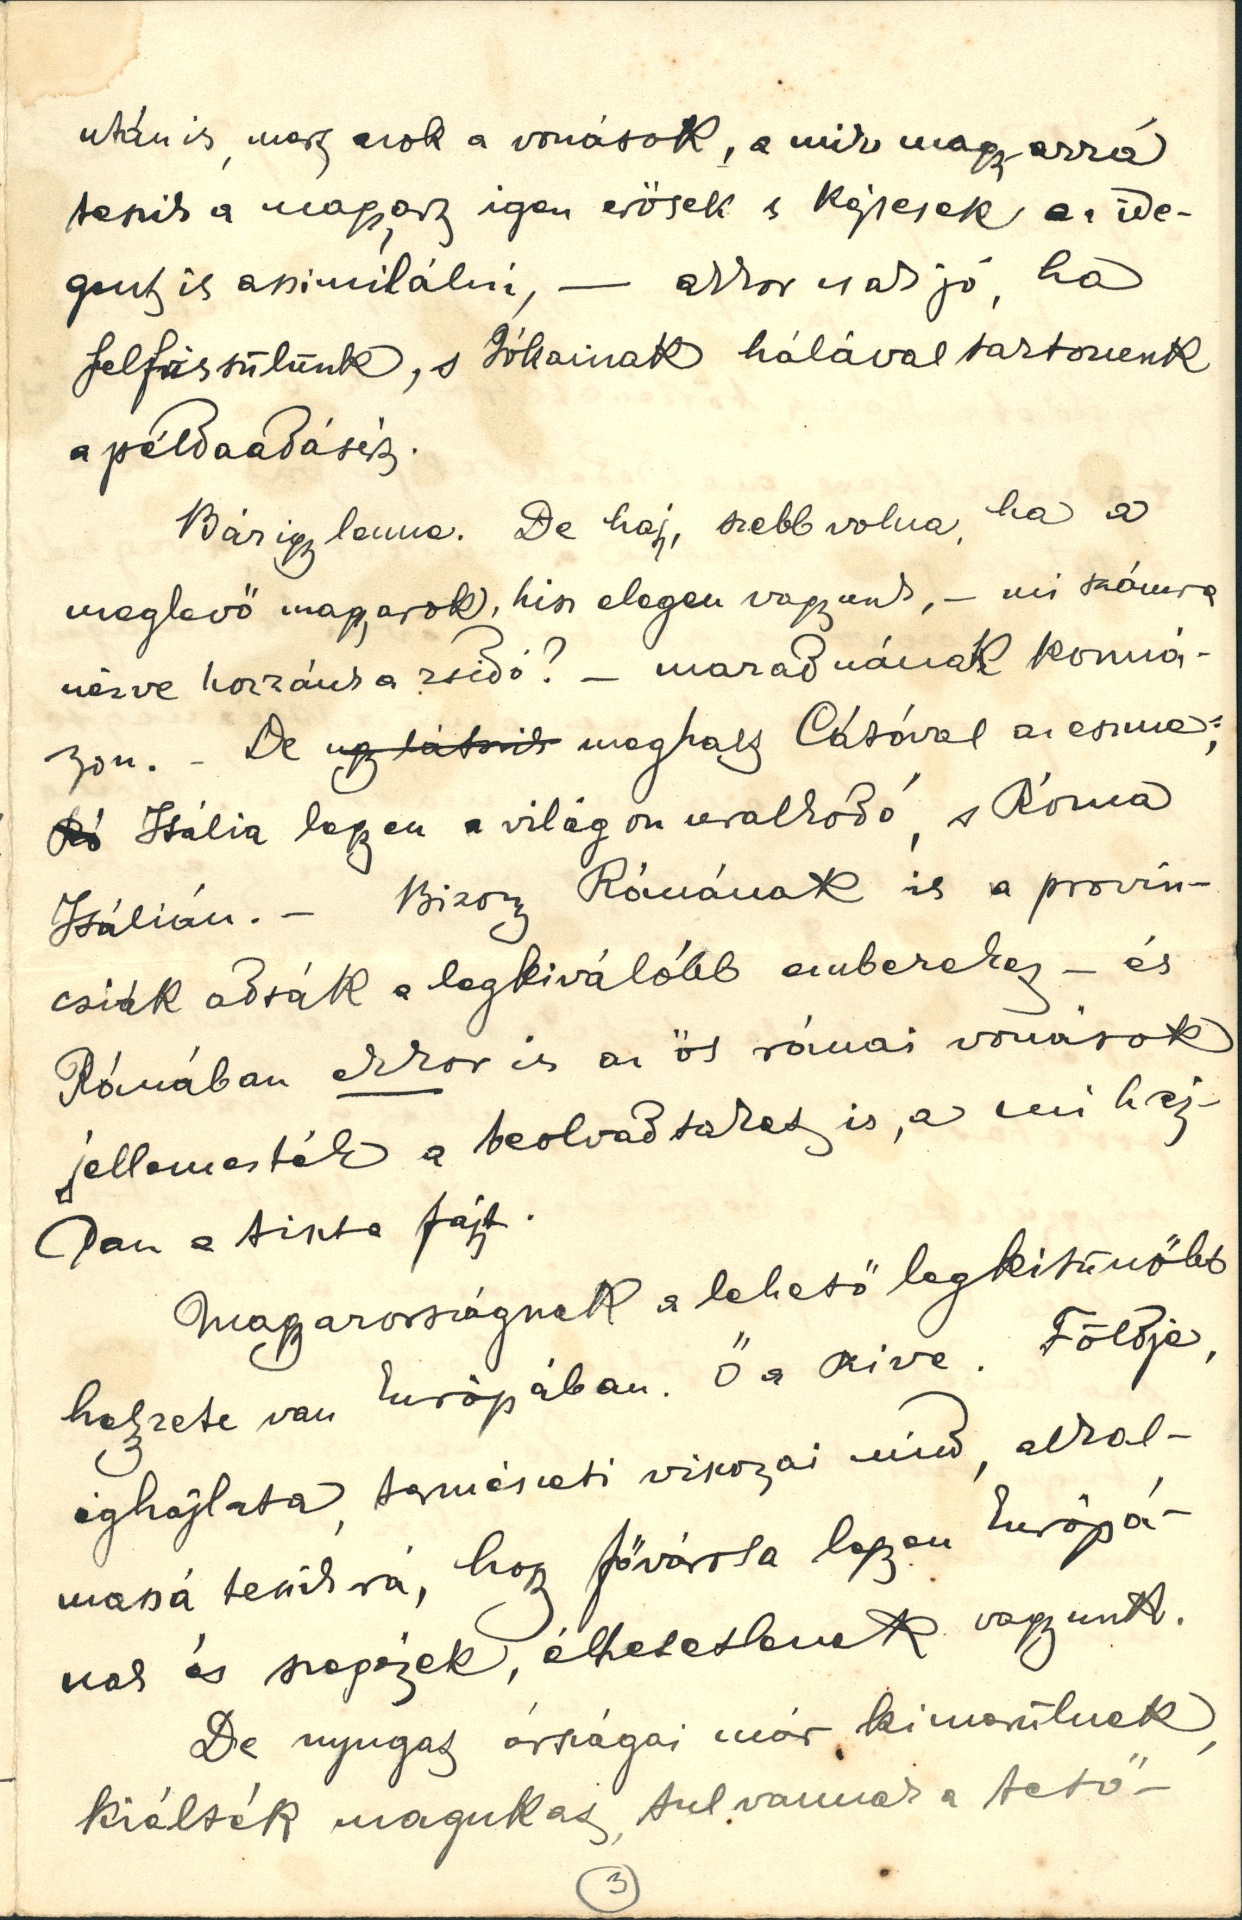 után is, mert azok a vonások, a mik magyarrá
teszik a magyart igen erősek s képesek az ide-
gent is assimilálni, — akkor csak jó, ha
felfrissülünk, s Jókainak hálával tartozunk
a példaadásért.
Bár igy lenne. De haj, szebb volna, ha a
meglevő magyarok, hisz elegen vagyunk, — mi számra
nézve hozzánk a zsidó? — maradnának kormá-
zon. – De ugy látszik meghalt Cátóval az eszme,
Ró Itália legyen a világon uralkodó, s Róma
Itálián. – Bizony Rómának is a provin-
cziák adták a legkiválóbb embereket – és
Rómában ekkor is az ős római vonások
jellemezték a beolvadtakat is, a mi haj-
dan a tiszta fajt.
Magyarországnak a lehető legkitünőbb
helyzete van Európában. Ő a szive. Földje,
éghajlata, természeti viszonyai mind, alkal-
massá teszik rá, hogy fővárosa legyen Európá-
nak és szegények, élhetetlenek vagyunk.
De nyugat országai már kimerülnek,
kiélték magukat, tul vannak a tető-
3